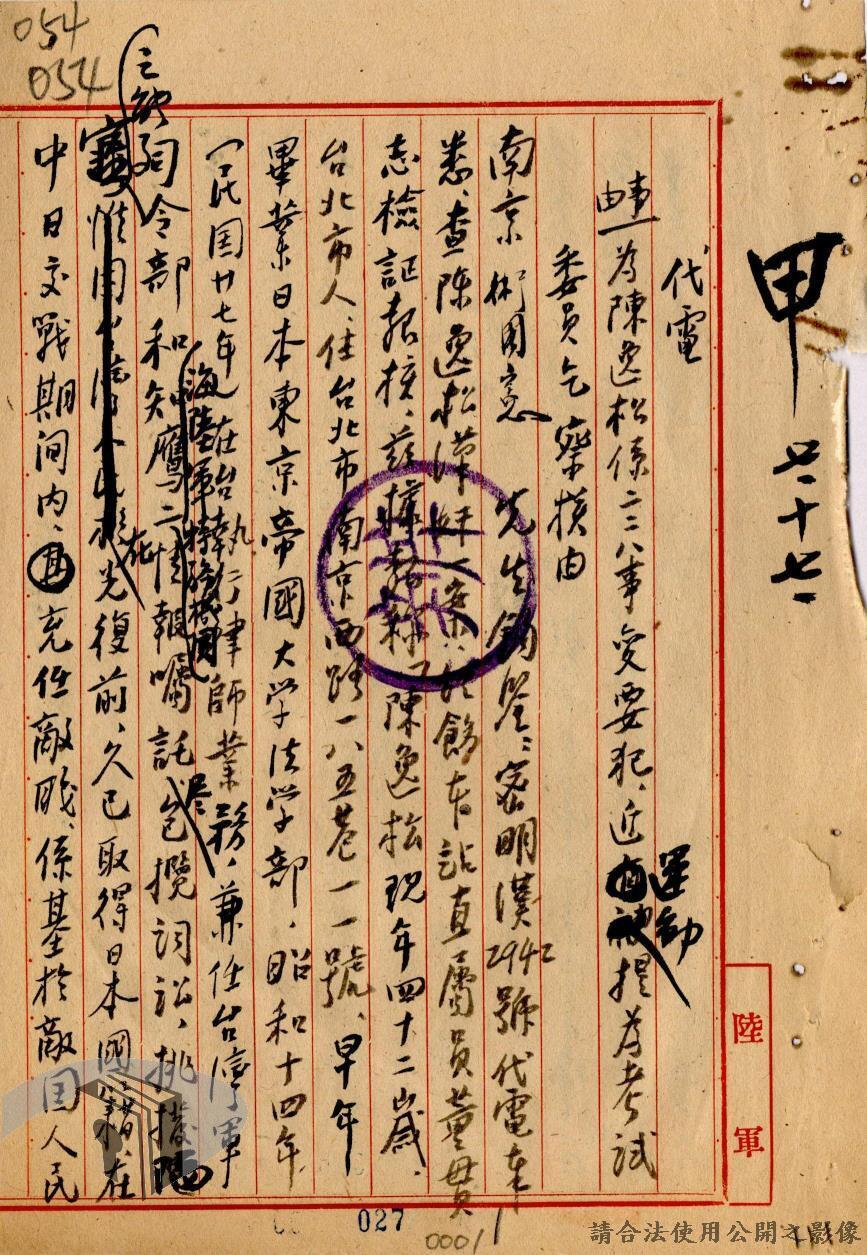 054
054
甲
七、十七、
代電
事由 為陳逸松係二二八事變要犯、近運動提為考試
委員乞察核由
南京 先生鈞鑒：密明漢2942號代電奉
悉、查陳逸松漢奸一案、經飭本站直屬員董貫
志檢証報核、茲據報稱「陳逸松現年四十二歲、
台北市人、住台北市南京西路一八五巷一一號、早年
畢業日本東京帝國大学法学部、昭和十四年
(民国廿七年)在台執行律師業務、兼任台湾軍
司令部和知鷹二情報囑託
海陸軍特務機関
包攬詞訟、挑撥
惟因台灣人民於光復前、久已取得日本國籍、在
中日交戰期间内、充任敵職、係基於敵国人民
陸軍
027
0001
請合法使用公開之影像